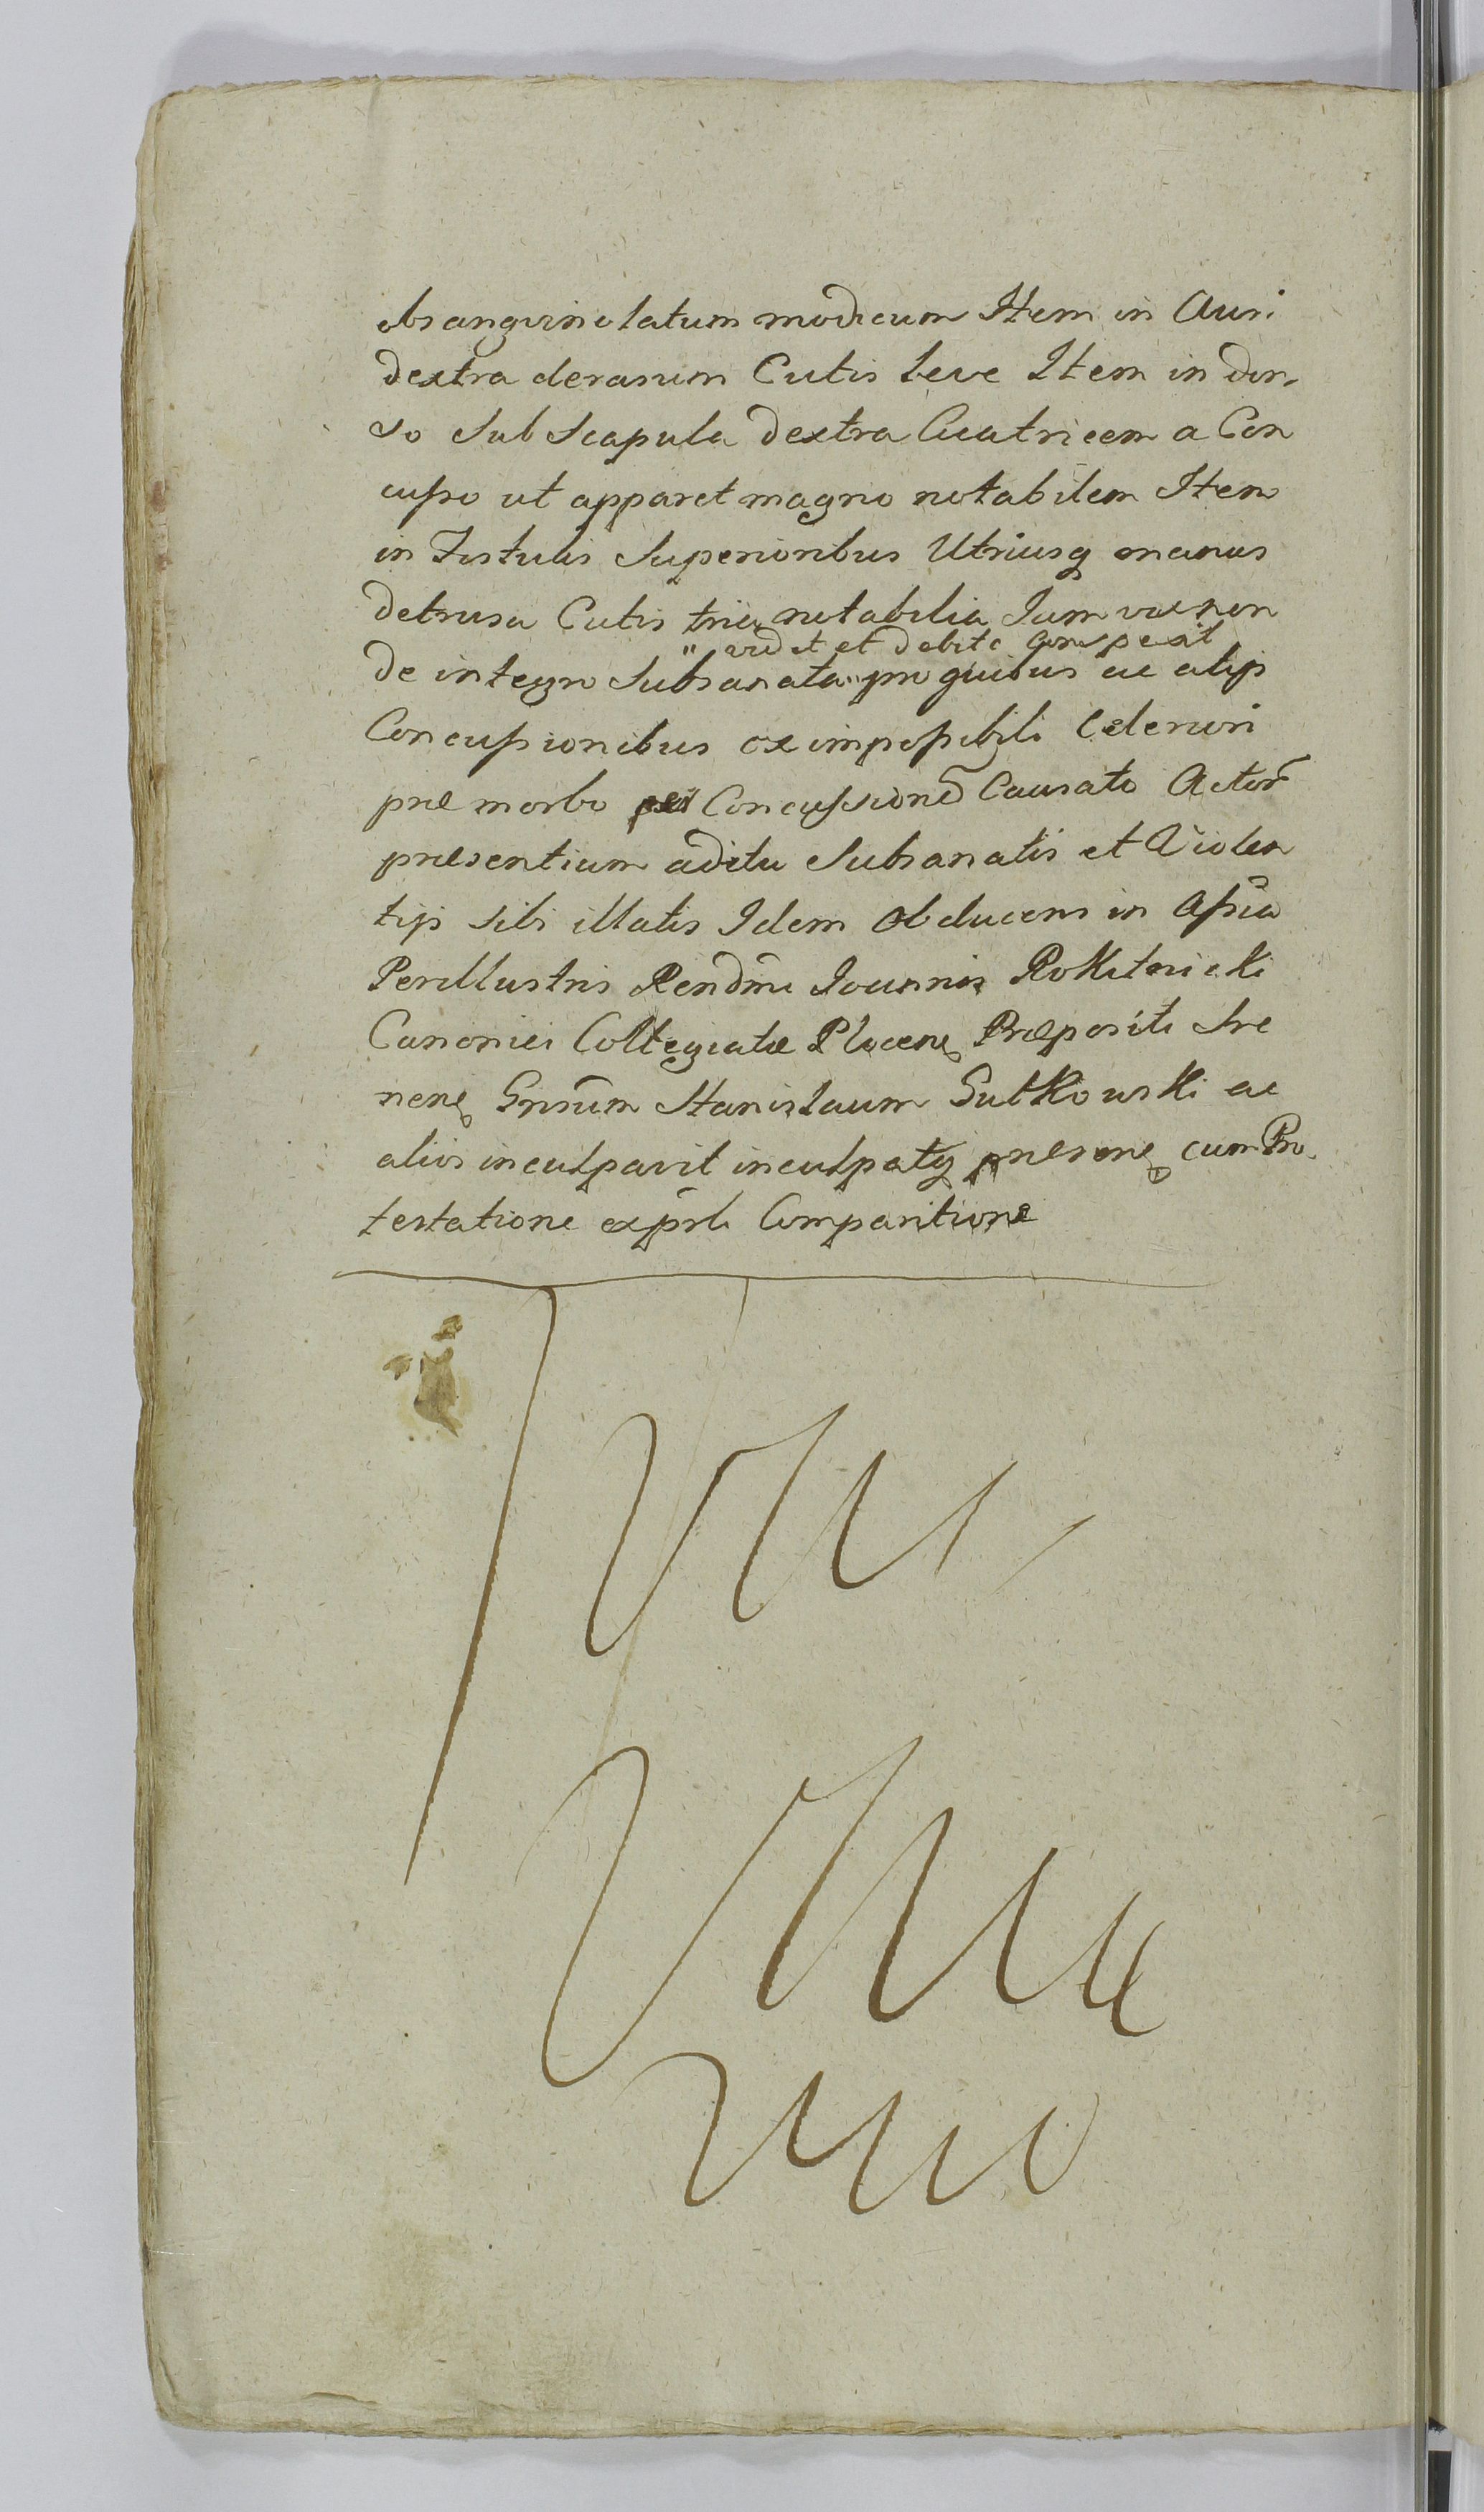 obsangvinolatum modicum Item in Auri
dextra derasum Cutis leve Item in dor-
so sub scapula dextra Cicatricem a Con
cusso ut apparet magno notabilem Item
in Fistulis Superioribus Utriusq manus
detrusa Cutis tria notabilia Iam vix non
" vidit et debite Conspexit
de integro Subsanata " pro quibus ac alijs
Concussionibus ex impossibili Celeriori
præ morbo per Concussionẽ Causato Actor̃
præsentium aditu Subsanatis et Violen
tijs sibi illatis Idem Obducens in Assia
Perillustris Rendm̃i Ioannis Rokitnicki
Canonici Collegiatæ Plocenę Præpositi Sre
nenę Gnsum̃ Stanislaum Sutkowski ac
alios inculpavit inculpatq præsenę cum Pro-
testatione ex pr̃li Comparitione